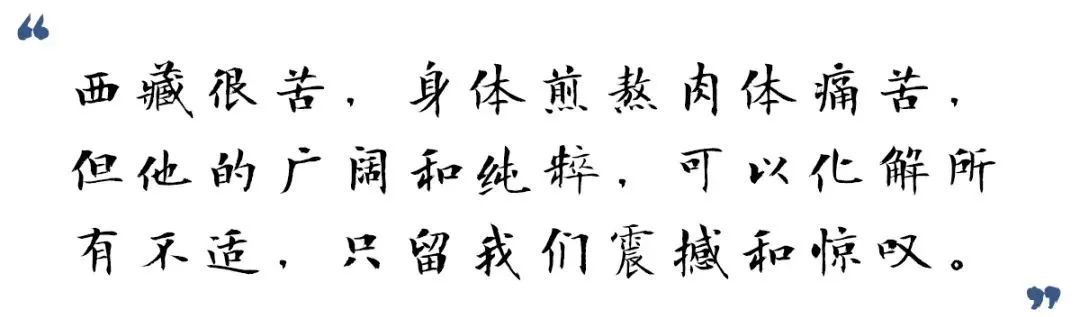 “
西藏很苦，身体煎熬肉体痛苦，
但他的广阔和纯粹，可以化解所
有不适，只留我们震撼和惊叹。
”